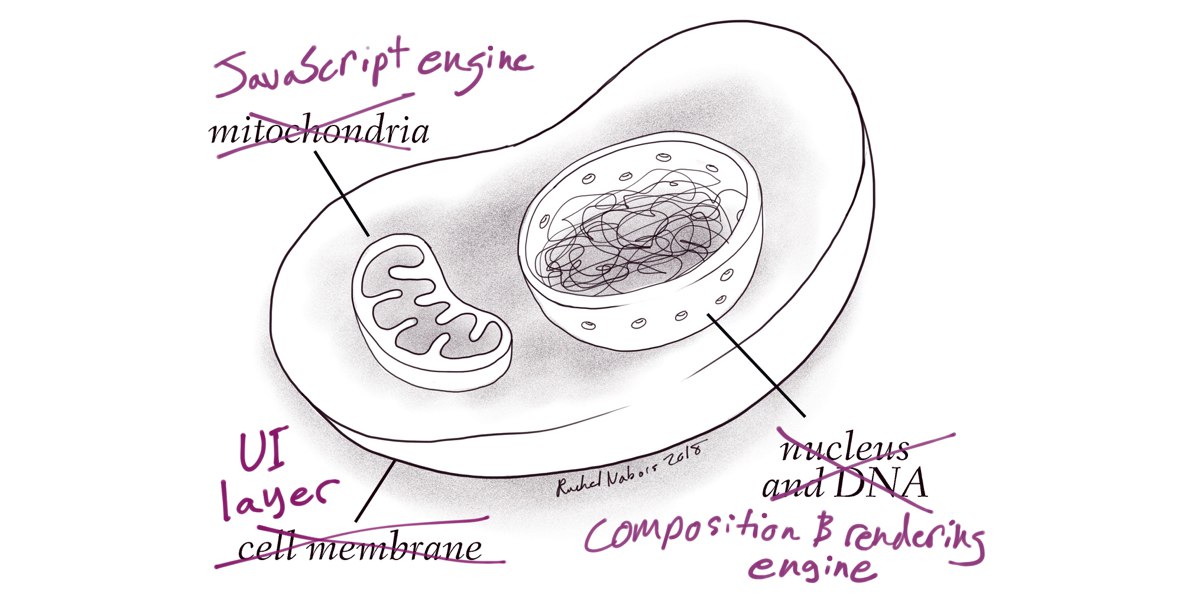 JavaScript engine
mitochondria
UI
layer
cell membrane
Rachel Nabors 2018
nucleus
and DNA
composition & rendering
engine